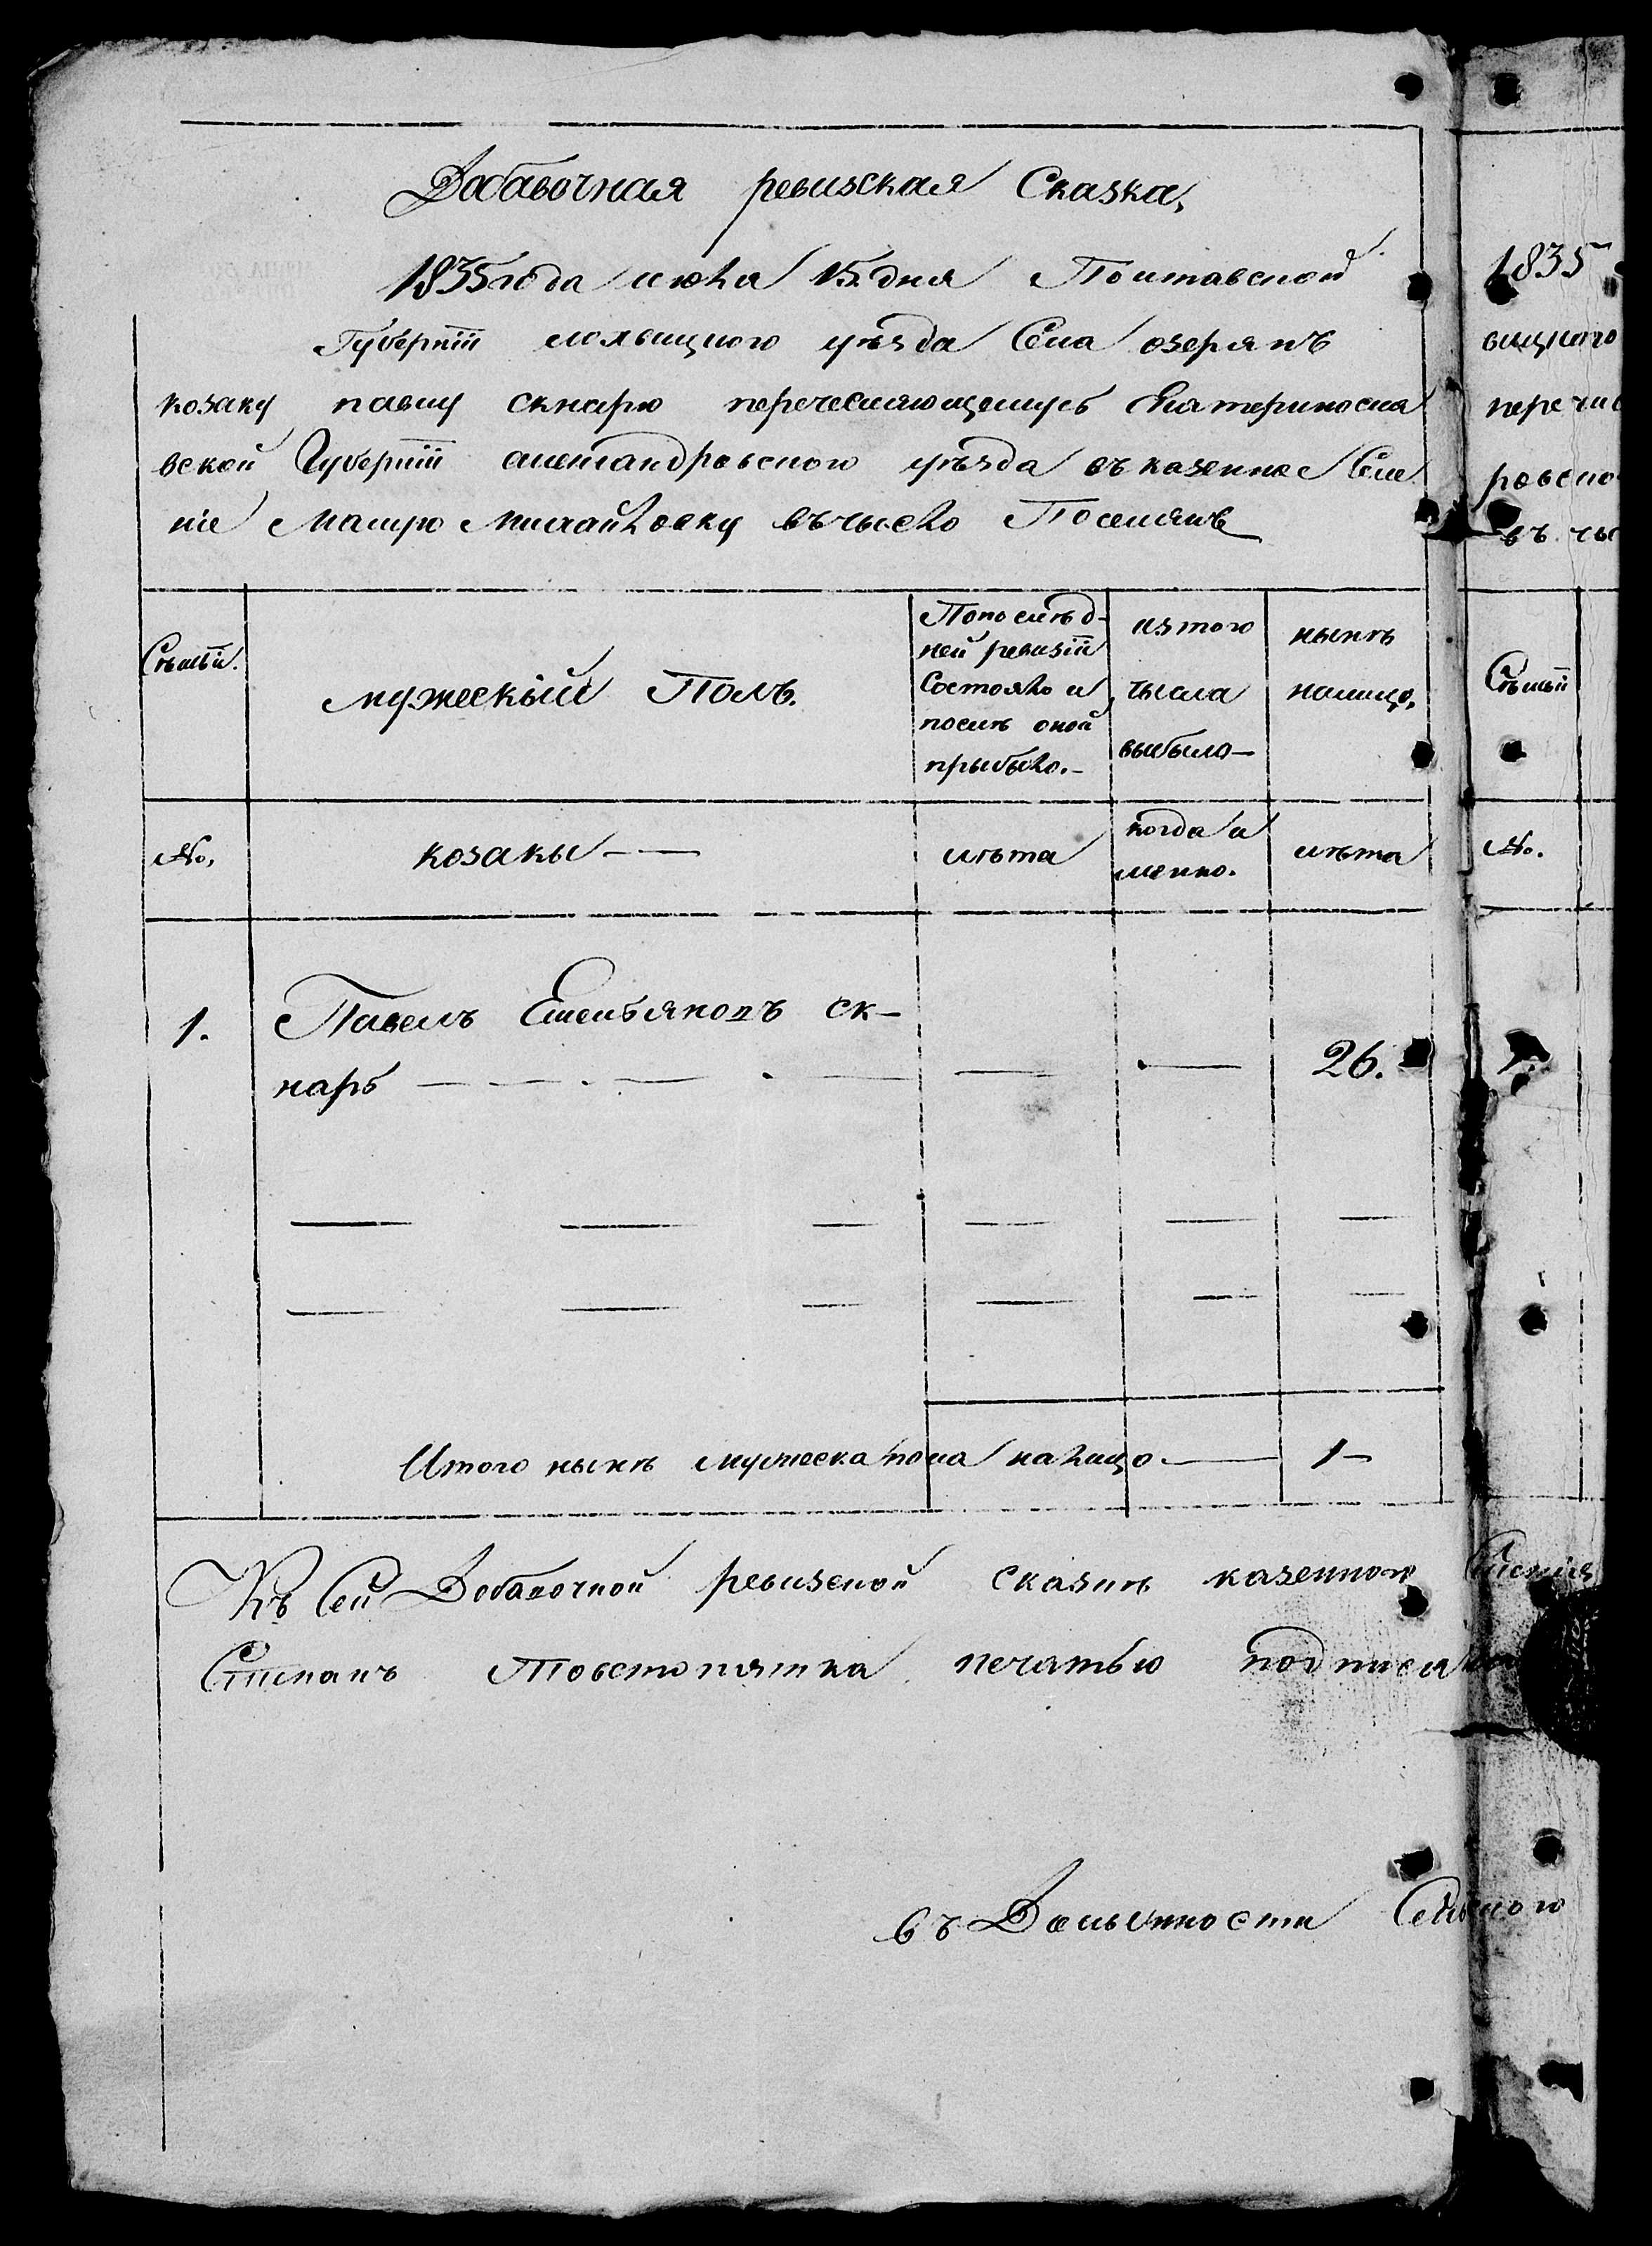 Дабавочная ревизская Сказка,
1835 года июля 15. дня Полтавской
Губерніи лохвицкого уѣзда Села озерянъ
козаку павлу скнарю перечесляющемусь Екатериносла
вской Губерніи александровского уѣзда въ казенное Селе
ніе Малую Михайловку въ чысло Поселянъ
Сѣмьи.
мужескый Полъ.
По послѣд-
ней ревизіи
Состояло и
послѣ оной
прыбыло.-
из того
чысла
выбыло—
нынѣ
налицо,
No,
козакы — —
лѣта
когда и
менно.
лѣта
1.
Павелъ Емельяновъ ск-
нарь — — — — — — 26.
Итого нынѣ мужеска пола налицо — 1—
Къ Сей Добавочной ревизской сказкѣ казенного Селенія
Степанъ Товстопятка печатью подписа
въ Должности Сельского
1835
вицкого
перечис
ровско
въ чы
Сѣмьи
No.
1.